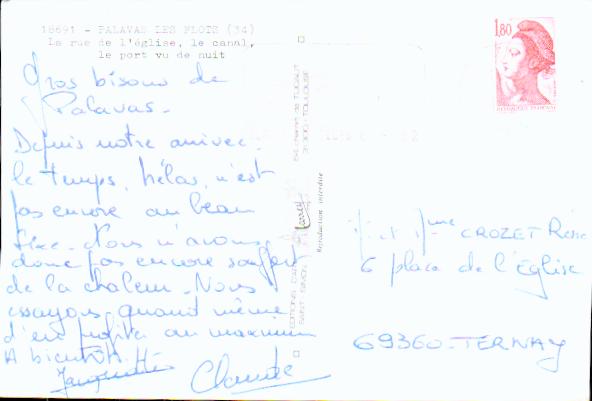 18691 - PALAVAS LES FLOTS (34)
La rue de l'église, le canal,
le port vu de nuit
Gros bisous de
Palavas-
Depuis notre arrivée,
le temps, hélas, n'est
pas encore au beau
fixe. Nous n'avons
donc pas encore souffert
de la chaleur. Nous
essayons quand même
d'en profiter au maximum
A bientôt.
Claude
1,80
Reproduction interdite
31300 TOULOUSE
M et Mme CROZET René
6 place de l'Église
69360-TERNAY